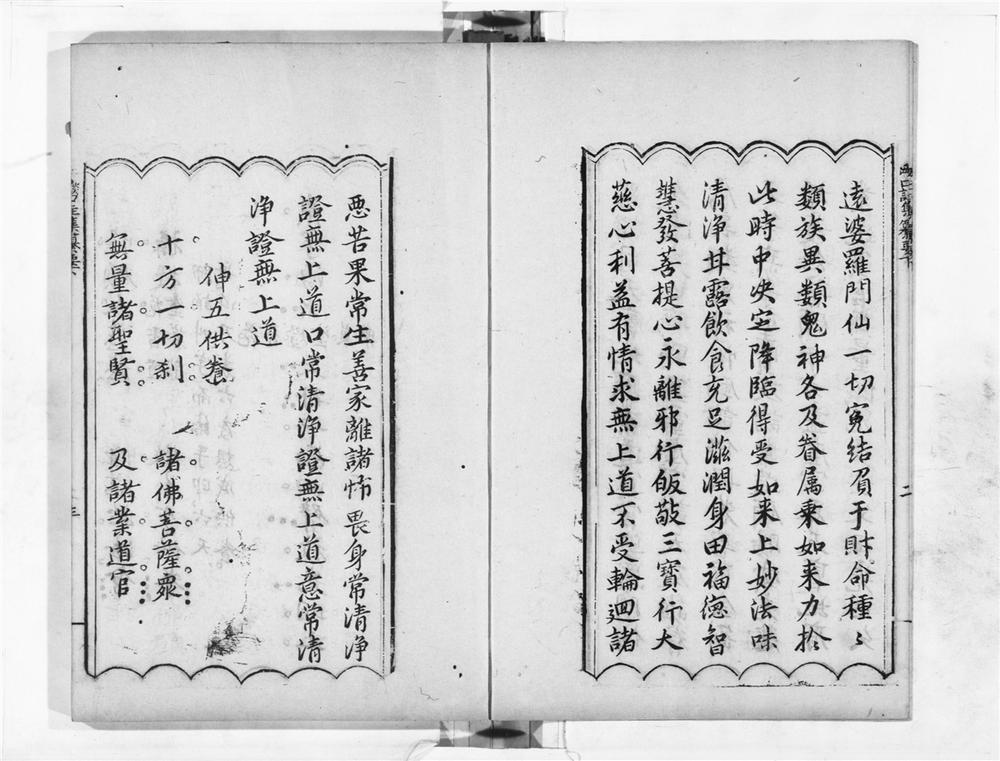 遠婆羅門仙一切寃結負于財命種〻
類族異類鬼神各及眷属乗如来力扵
此時中决定降臨得受如来上妙法味
清淨甘露飲食充足滋潤身田福德智
慧發菩提心永離邪行皈敬三寳行大
慈心利益有情求無上道不受輪迴諸
二
惡苦果常生善家離諸怖畏身常清淨
證無上道口常清淨證無上道意常清
淨證無上道
伸五供養
十方一切刹 諸佛菩薩衆
無量諸聖賢 及諸業道官